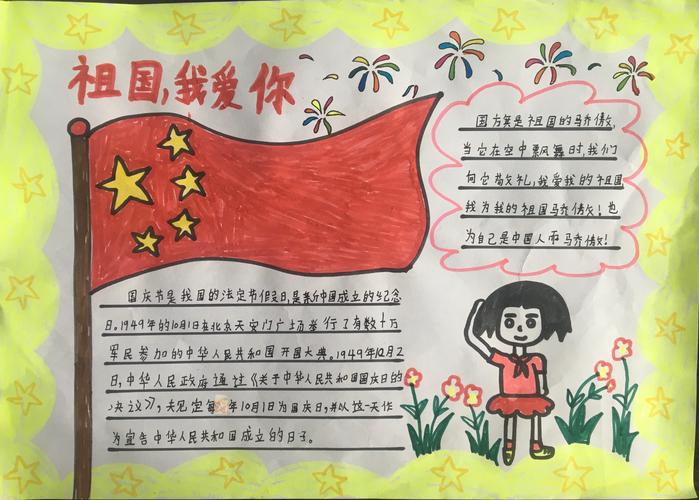 祖国,我爱你
国旗是祖国的骄傲,
当它在空中飘舞时,我们
向它敬礼,我爱我的祖国
我为我的祖国骄傲!也
为自己是中国人而骄傲!
国庆节是我国的法定节假日,是新中国成立的纪念
日。1949年的10月1日在北京天安门广场举行了有数十万
军民参加的中华人民共和国开国大典。1949年10月2
日,中华人民政府通过《关于中华人民共和国国庆日的
决议》,规定每年10月1日为国庆日,并以这一天作
为宣告中华人民共和国成立的日子。